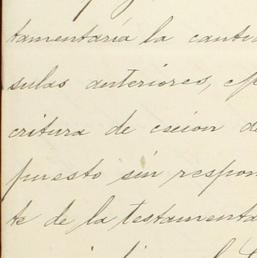 tamentaría la canti
sulas anteriores, ep
critura de cecion de
puesto sin respon
te de la testamenta